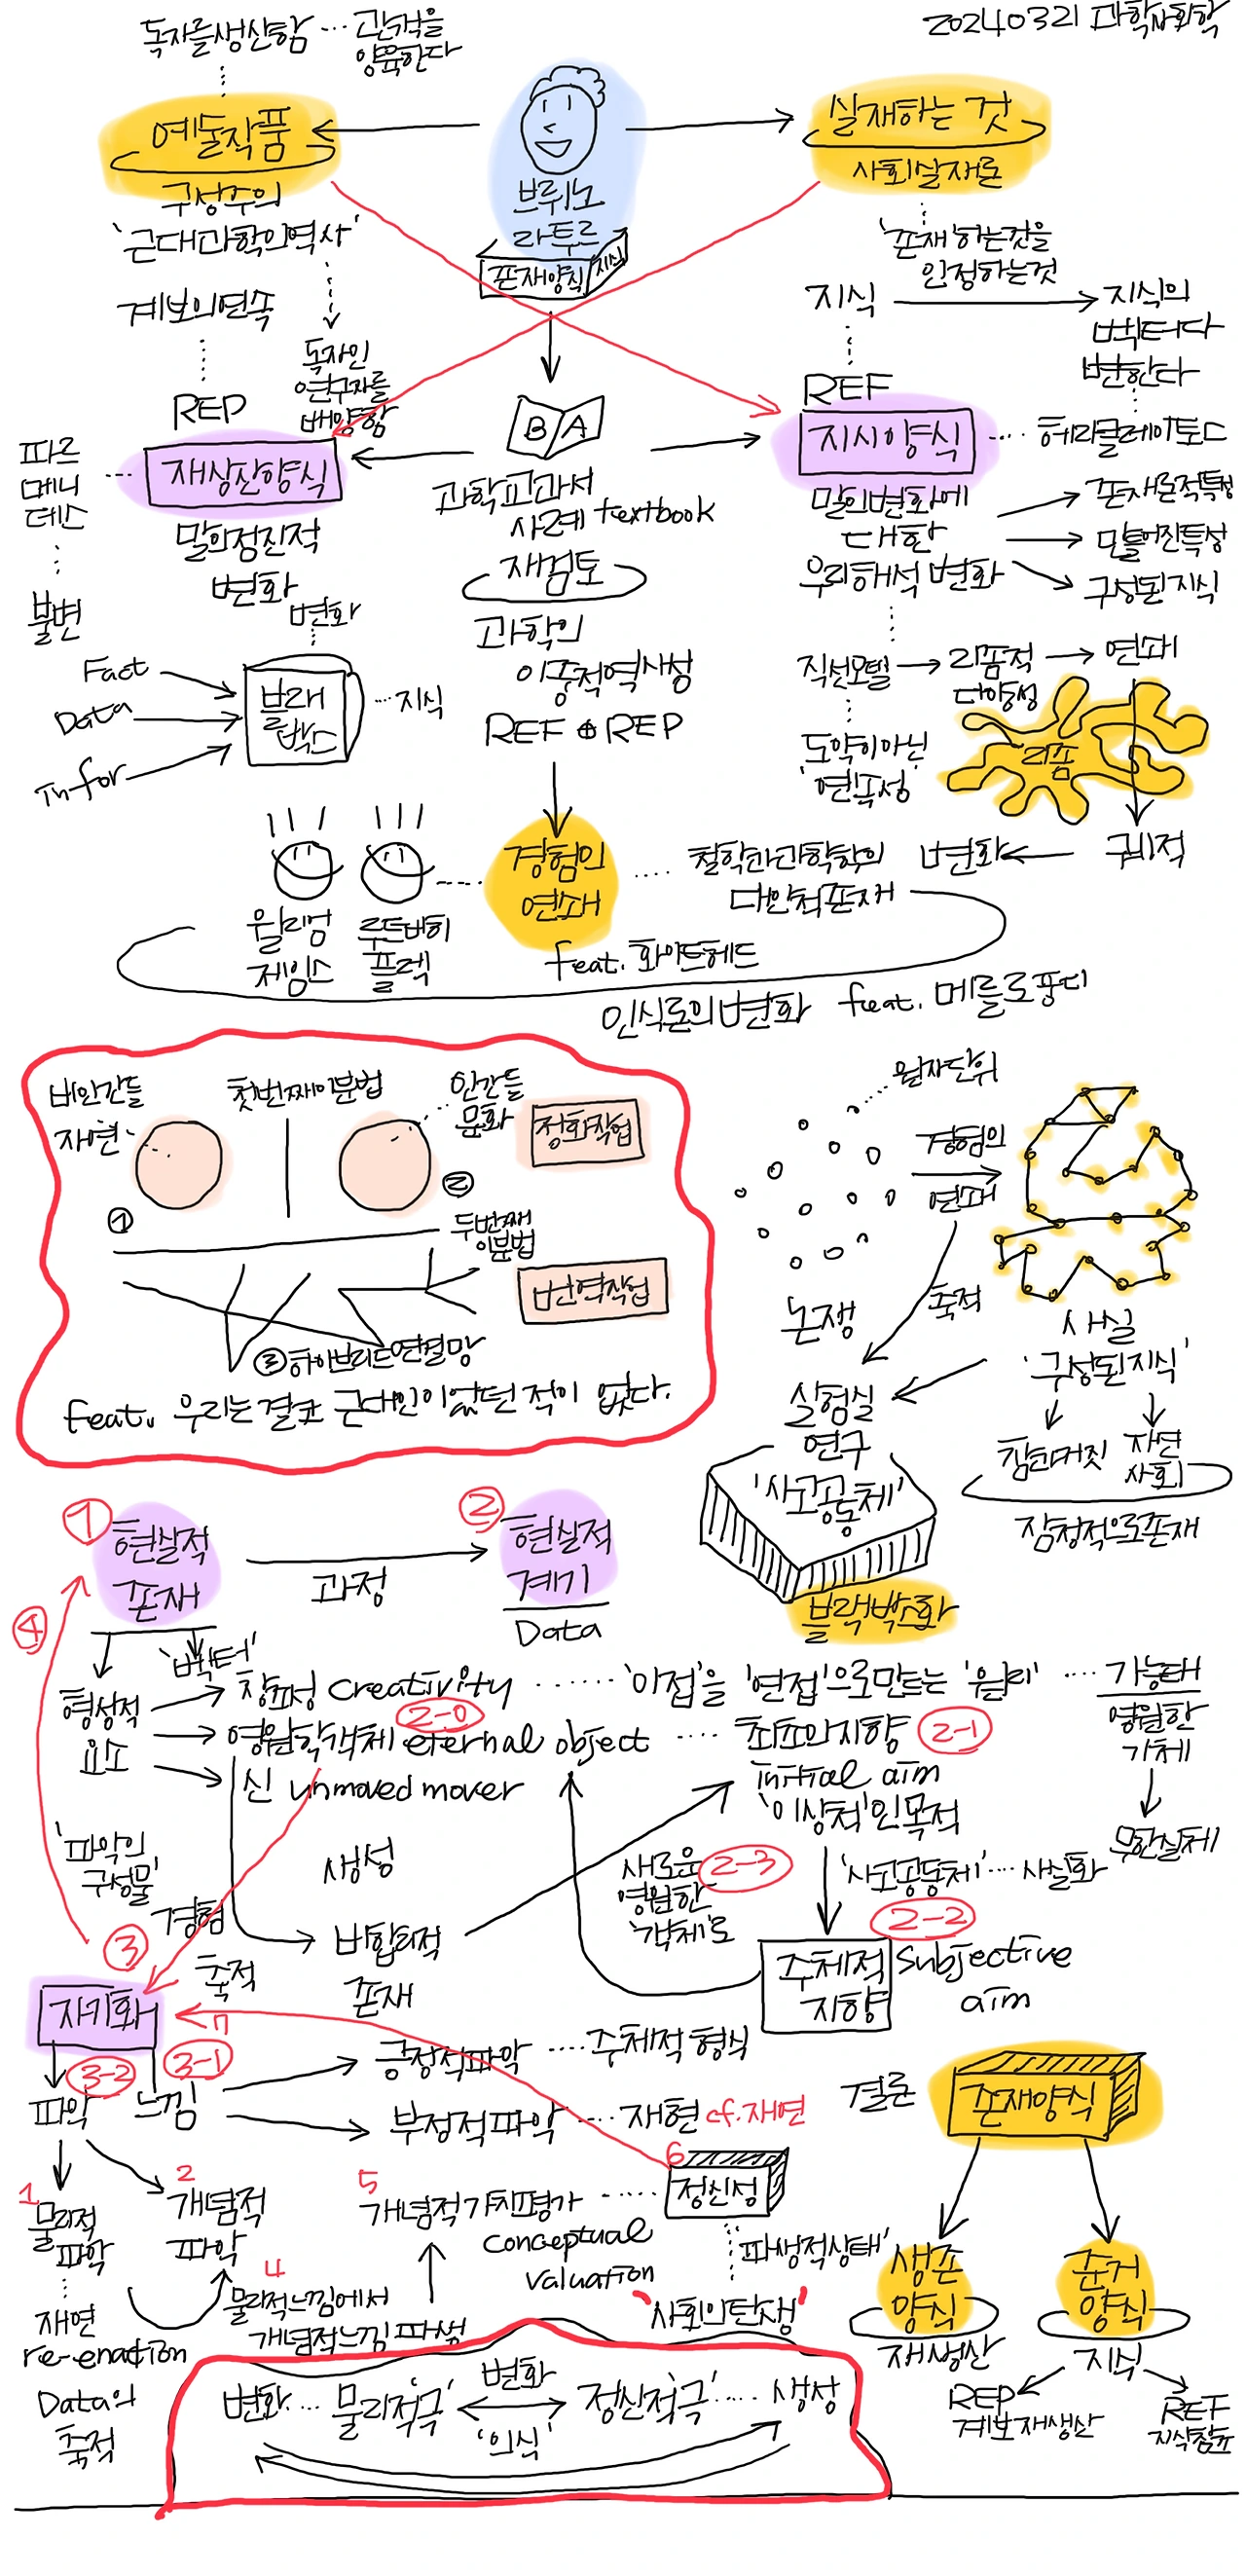 20240321 과학사회학
독자를생산함 … 관객을
양육한다
예술작품
구성주의
'근대과학의역사'
계보의연속
독자인
연구자를
배양함
브뤼노
라투르
존재양식
지식
실재하는 것
사회실재론
'존재'하는것을
인정하는것
지식
지식의
벡터다
변한다
REP
재생산양식
말의점진적
변화
파르
메니
데스
불변
B A
과학교과서
사례 textbook
재검토
과학의
이중적역사성
REF ⊕ REP
REF
지시양식
헤라클레이토스
말의변화에
대한
우리해석 변화
존재론적특성
만들어진특성
구성된지식
직선모델
리좀적
다양성
연쇄
도약이아닌
'연속성'
리좀
궤적
변화
변화
Fact
Data
Infor
블랙
박스
지식
윌리엄
제임스
루드비히
플렉
경험의
연쇄
철학과과학학의
대안적존재
feat. 화이트헤드
인식론의변화 feat. 메를로퐁티
비인간들
자연
첫번째이분법
인간들
문화
정화작업
①
②
두번째
이분법
번역작업
③하이브리드연결망
feat. 우리는결코 근대인이었던적이 없다.
원자단위
경험의
연쇄
논쟁
축적
사실
'구성된지식'
실험실
연구
'사고공동체'
블랙박스화
참과거짓
자연
사회
잠정적으로존재
①
현실적
존재
과정
②
현실적
계기
Data
④
'벡터'
형성적
요소
창조성 creativity …… '이접'을 '연접'으로만드는 '원리' …
가능태
영원한
객체
무한실체
2-0
영원한객체 eternal object … 최초의지향
2-1
신 unmoved mover
initial aim
'이상적'인목적
'파악의
구성물'
생성
경험
축적
비합리적
존재
새로운
영원한
'객체'로
2-3
'사고공동체'… 사실화
2-2
주체적
지향
Subjective
aim
③
자기화
3-2
3-1
파악
느낌
긍정적파악 … 주체적 형식
부정적파악 … 재현 cf.재연
1
물리적
파악
2
개념적
파악
재연
re-enaction
Data의
축적
4
물리적느낌에서
개념적느낌 파생
5
개념적가치평가
conceptual
valuation
6
정신성
'파생적상태'
"사회의탄생"
변화… '물리적극' 변화 '정신적극' … 생성
'의식'
결론
존재양식
생존
양식
재생산
준거
양식
지식
REP
계보재생산
REF
지식창출